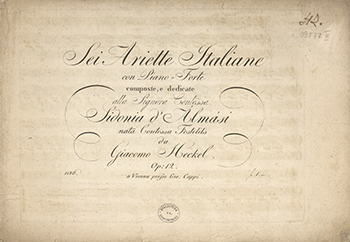 Sei Ariette Italiane
con Piano-Forte
composte, e dedicate
alla Signora Contessa
Sidonia d'Almási
natà Contessa Festitits
da
Giacomo Heckel.
Op: 12.
a Vienna presso Gio. Cappi.